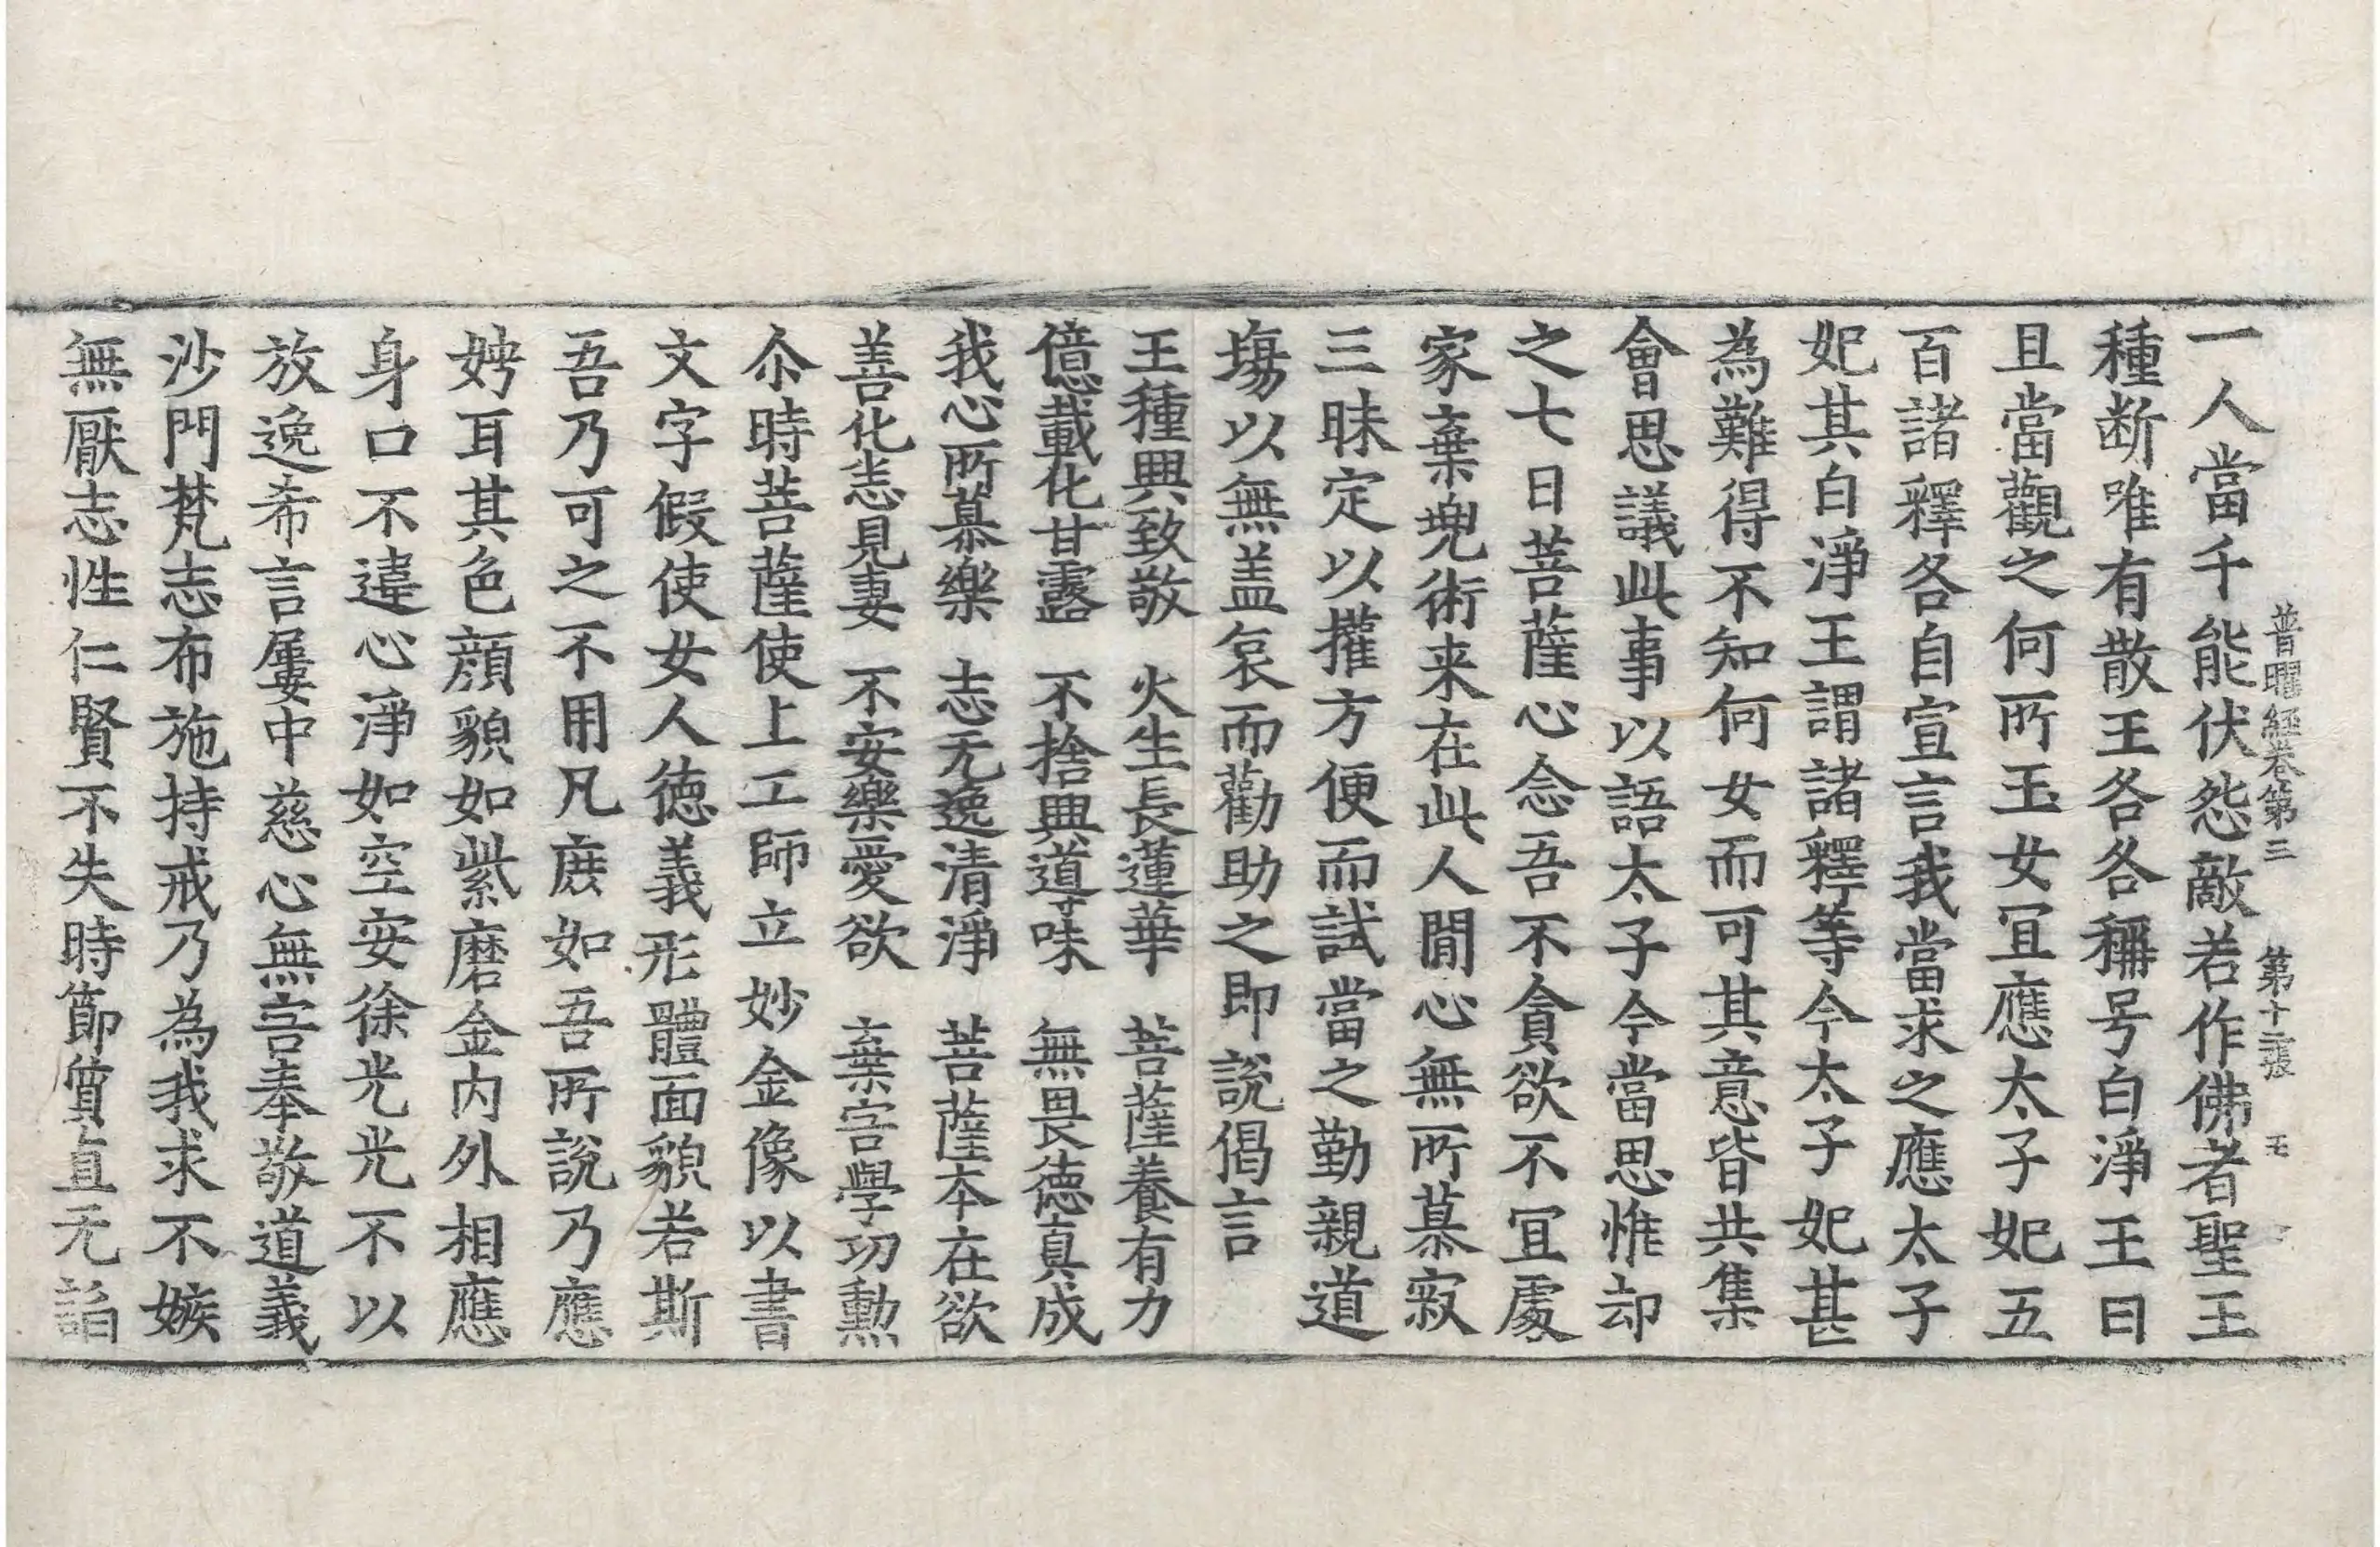 普曜經卷第三　第十二張　毛
一人當千能伏怨敵若作佛者聖王
種断唯有散王各各稱号白淨王曰
且當觀之何所玉女宜應太子妃五
百諸釋各自宣言我當求之應太子
妃其白淨王謂諸釋等今太子妃甚
為難得不知何女而可其意皆共集
會思議此事以語太子今當思惟却
之七日菩薩心念吾不貪欲不宜處
家棄塊術来在此人閒心無所慕寂
三昧定以權方便而試當之勤親道
塲以無盖哀而勸助之即說偈言
王種興致敬　火生長蓮華　菩薩養有力
億載化甘露　不捨興導味　無畏德真成
我心所慕樂　志无逸清淨　菩薩本在欲
善化恚見妻　不安樂愛欲　棄害學功勲
尒時菩薩使上工師立妙金像以書
文字假使女人德義形體面貌若斯
吾乃可之不用凡庶如吾所說乃應
娉耳其色顔貌如紫磨金内外相應
身口不違心淨如空安徐光光不以
放逸希言屢中慈心無害奉敬道義
沙門梵志布施持戒乃為我求不嫉
無厭志性仁賢不失時節質直无諂